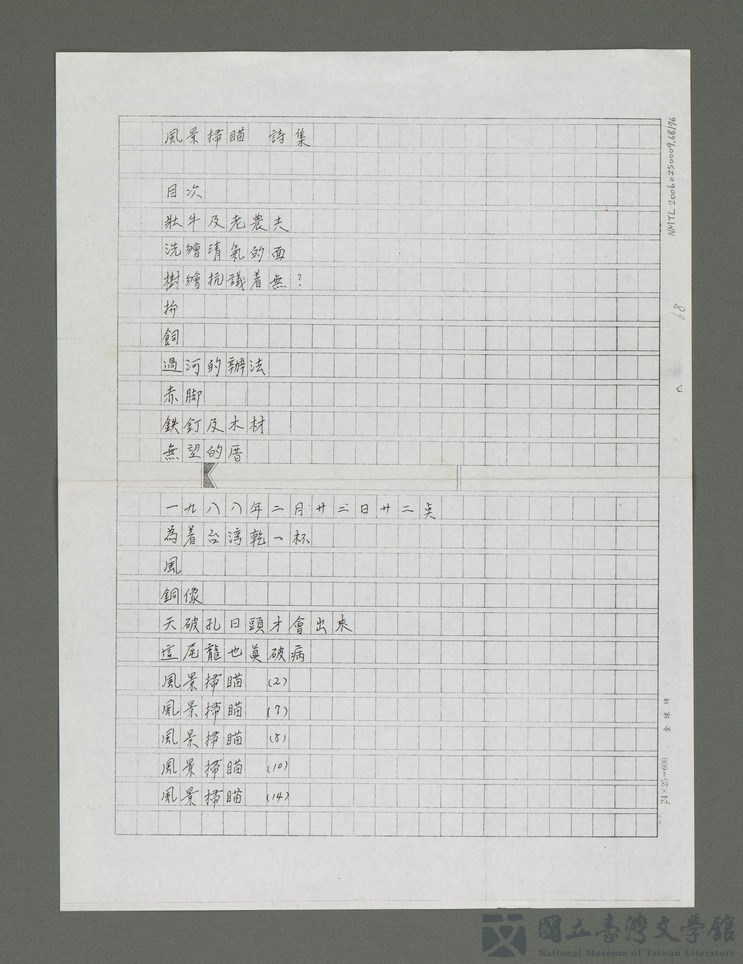 風景掃瞄　詩集
目次
壯牛及老農夫
洗𣍐清氣的面
樹𣍐抗議着無？
拚
飼
過河的辦法
赤脚
鉄釘及木材
無望的厝
一九八八年二月廿三日廿二点
為着台湾乾一杯
風
銅像
天破孔日頭才會出來
這尾龍也眞破病
風景掃瞄 (2)
風景掃瞄 (7)
風景掃瞄 (8)
風景掃瞄 (10)
風景掃瞄 (14)
NMTL20060250009.68/76
68
金球牌
24×25=600
國立臺灣文學館
National Museum of Taiwan Literature